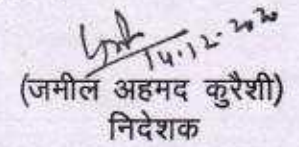 14.12.2020
(जमील अहमद कुरैशी)
निदेशक